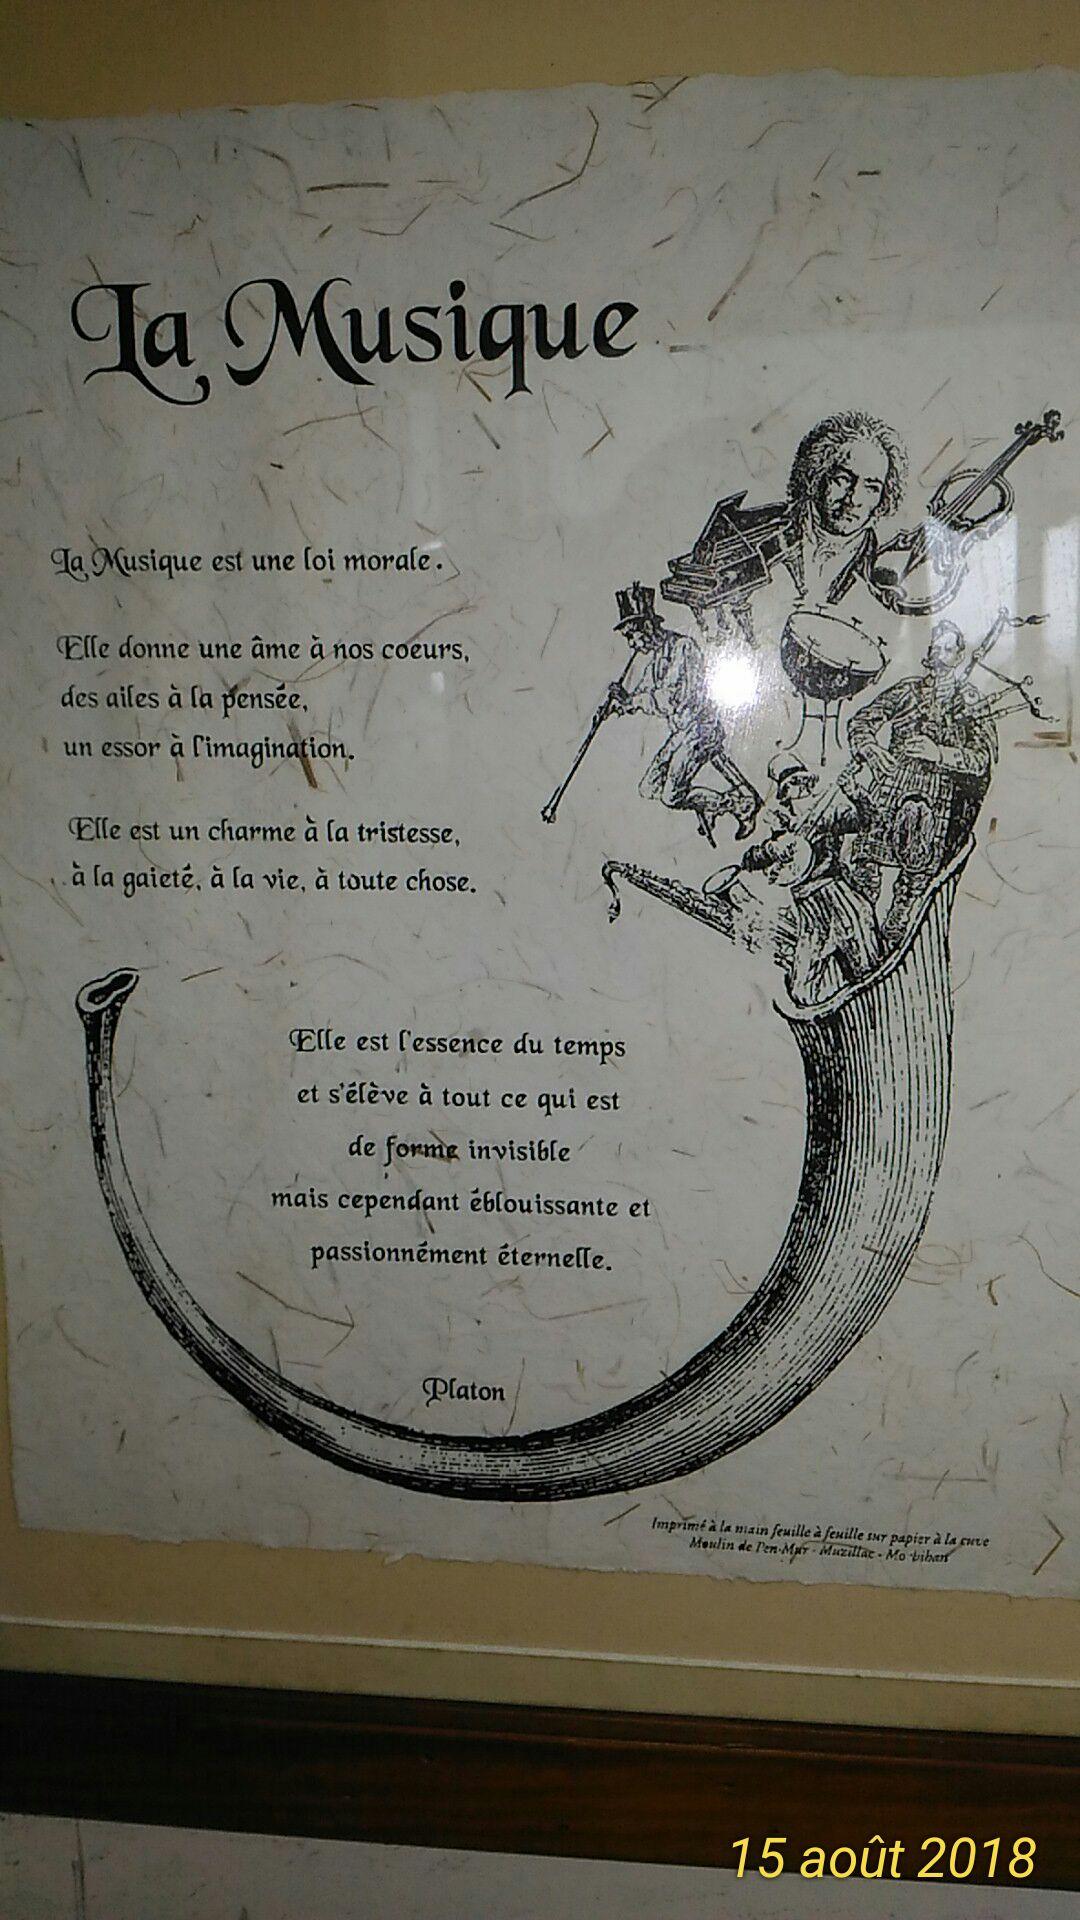 La Musique
La Musique est une loi morale.
Elle donne une âme à nos coeurs,
des ailes à la pensée,
un essor à l'imagination.
Elle est un charme à la tristesse,
à la gaieté, à la vie, à toute chose.
Elle est l'essence du temps
et s'élève à tout ce qui est
de forme invisible
mais cependant éblouissante et
passionnément éternelle.
Platon
Imprimé à la main feuille à feuille sur papier à la cuve
Moulin de Pen-Mur - Muzillac - Mo bihan
15 août 2018